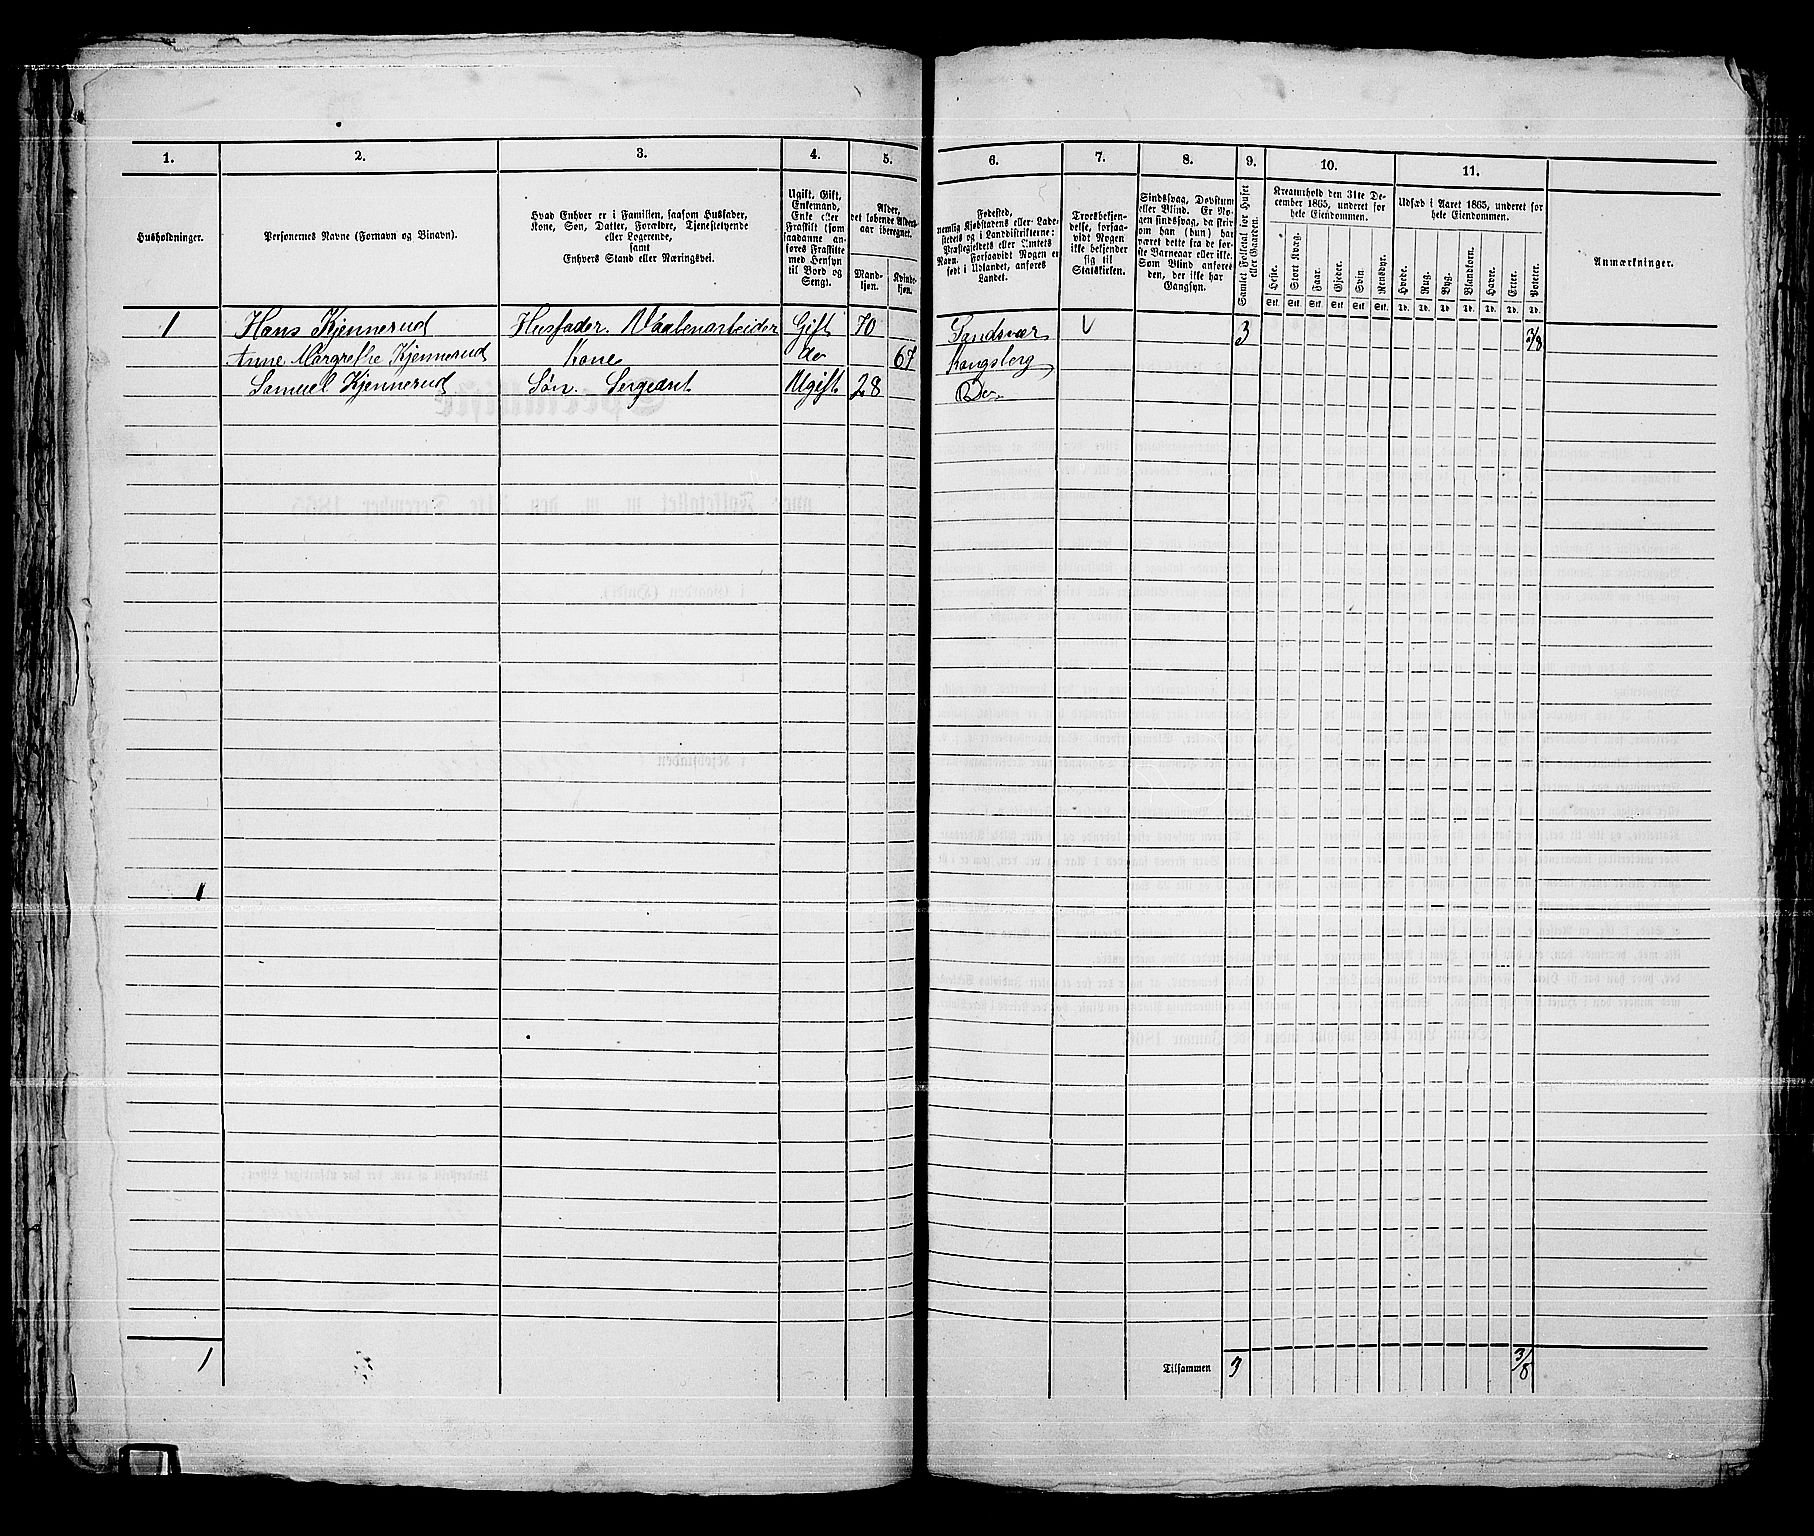 1. 2. 3. 4. 5. 6. 7. 8. 9. 10. 11.
Husholdninger.
Personernes Navne (Fornavn og Binavn).
Hvad Enhver er i Familien, saasom Husfader,
Kone, Søn, Datter, Forældre, Tjenestetyende
eller Logerende,
samt
Enhvers Stand eller Næringsvei.
Ugift, Gift,
Enkemand,
Enke eller
Fraskilt (som
saadanne an-
føres Fraskilte
med Hensyn
til Bord og
Seng).
Alder,
det løbende Alders-
aar iberegnet.
Mand-
kjøn.
Kvinde-
kjøn.
Fødested,
nemlig Kjøbstadens eller Lade-
stedets og i Landdistrikterne:
Præstegjeldets eller Amtets
Navn. Forsaavidt Nogen er
født i Udlandet, anføres
Landet.
Troesbekjen-
delse, forsaa-
vidt Nogen
ikke bekjender
sig til
Statskirken.
Sindssvag, Døvstum
eller Blind. Er No-
gen sindssvag, da skriv
om han (hun) har
været dette fra de før-
ste Barneaar eller ikke.
Som Blind anføres
den, der ikke har
Gangsyn.
Samlet Folketal for Huset
eller Gaarden.
Kreaturhold den 31te De-
cember 1865, underet for
hele Eiendommen.
Heste. Stort Kvæg. Faar. Gjeder. Svin. Rensdyr.
Stk. Stk. Stk. Stk. Stk. Stk.
Udsæd i Aaret 1865, underet for
hele Eiendommen.
Hvede. Rug. Byg. Blandkorn. Havre. Erter. Poteter.
Td. Td. Td. Td. Td. Td. Td.
Anmærkninger.
1 Hans Kjennerud Husfader. Vaabenarbeider Gift 70 Sandsvær V 3 3/8
Anne Margrethe Kjennerud Kone do 67 Kongsberg
Samuel Kjennerud Søn. Sergeant Ugift 28 Do.
1
1 Tilsammen 3 3/8